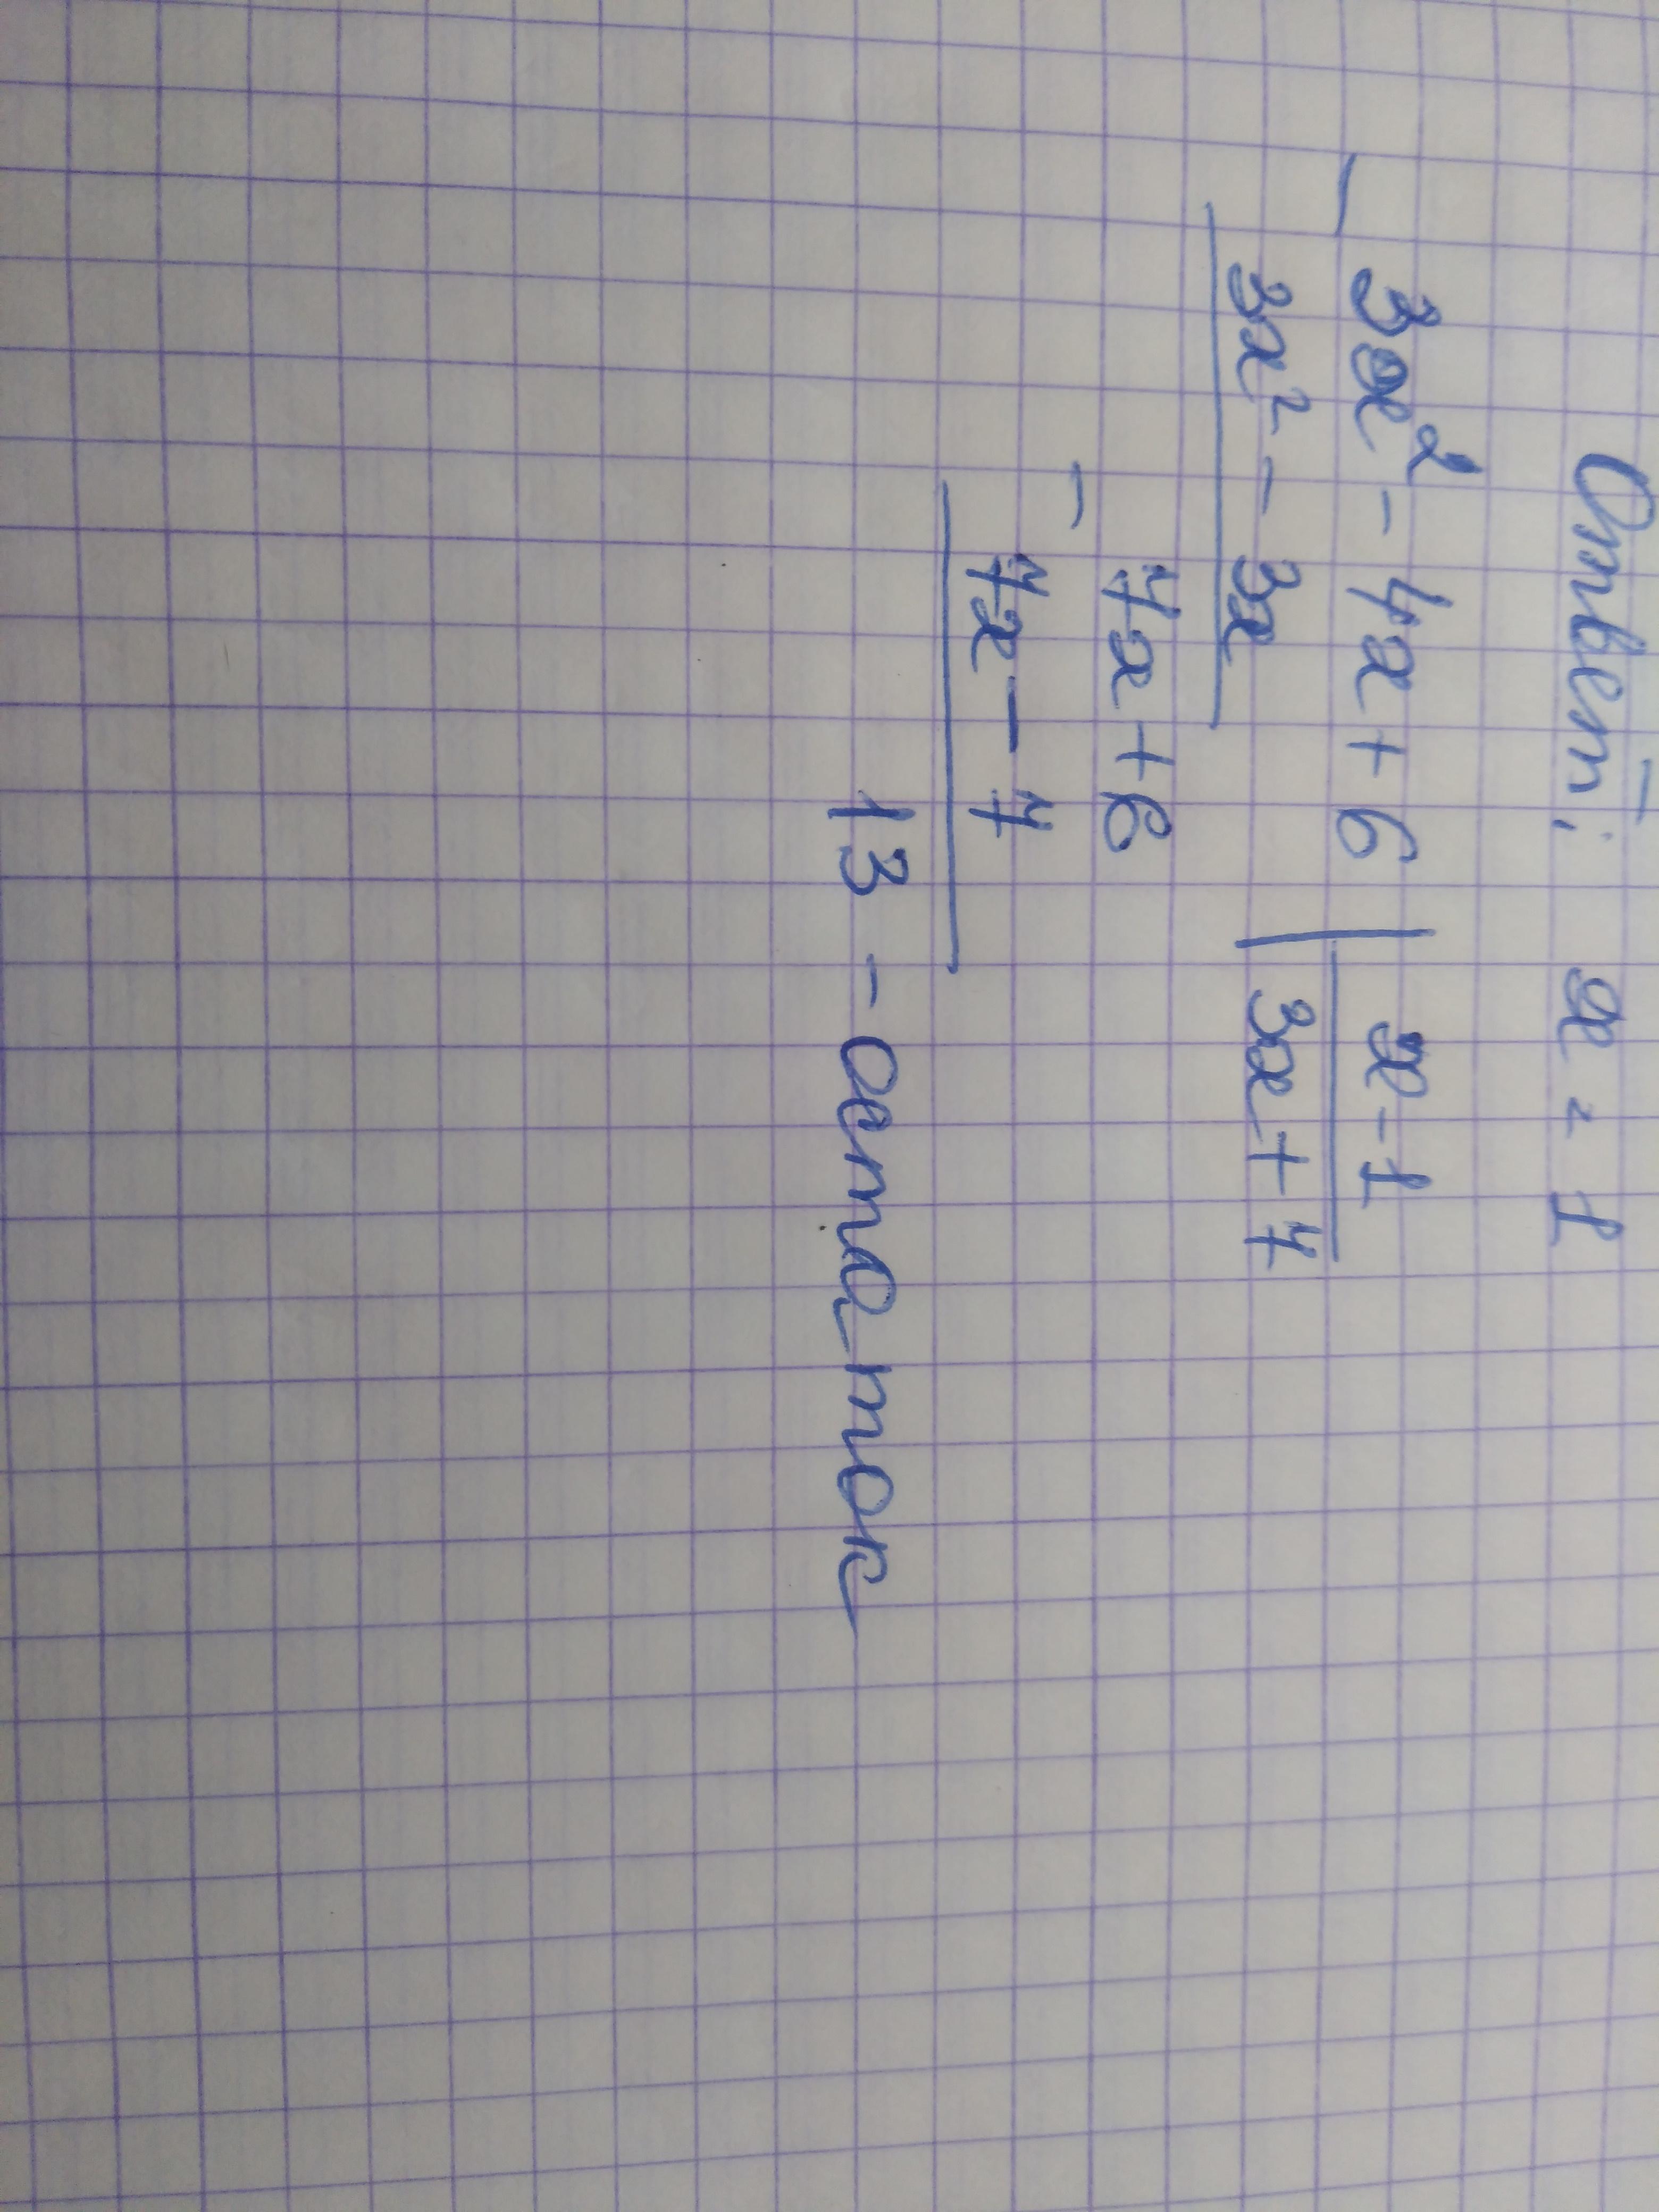 Ответ: x = 1
3x² - 4x + 6 | x - 1
3x² - 3x | 3x + 7
7x + 6
7x - 7
13 - остаток